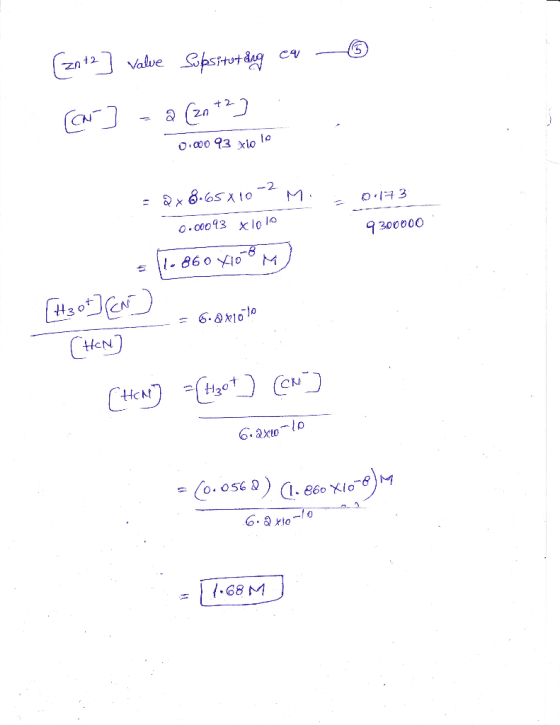 [Zn+2] value Supsitutāng eq — ⑤
[CN-] = 2 [Zn+2]
0.00093 x10 10
= 2 x 8.65 x 10-2 M. = 0.173
0.00093 x 10 10 9300000
= 1.860 x10-8 M
[H3O+] [CN-]
[HCN] = 6.2x10-10
[HCN] = [H3O+] [CN-]
6.2x10-10
= (0.0562) (1.860 x10-8) M
6.2 x10-10
= 1.68 M